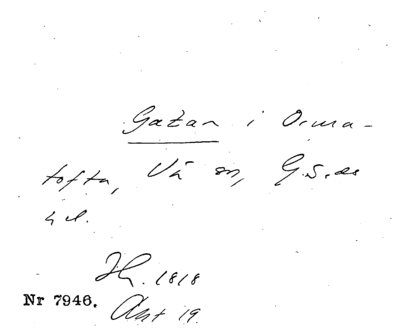 Gatan i Orma-
tofta, Vä sn, G.s. de
h d.
Jh. 1818
Nr 7946. Akt 19.